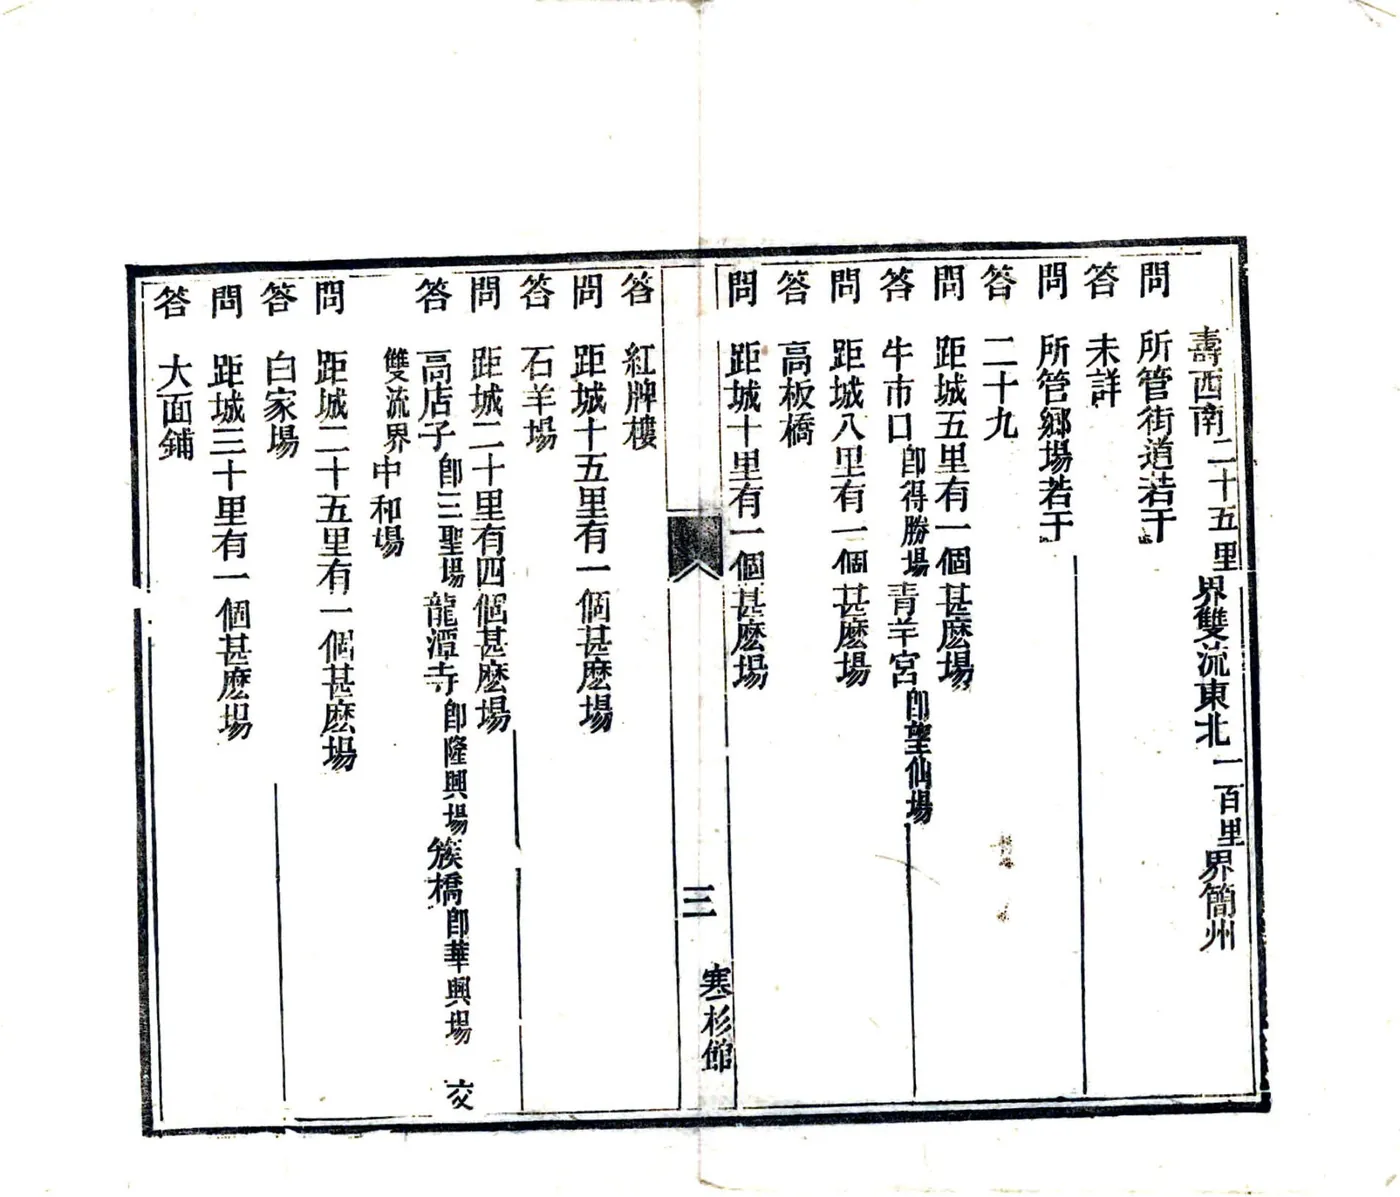 壽西南二十五里界雙流東北一百里界簡州
問　所管街道若干
答　未詳
問　所管鄉場若干
答　二十九
問　距城五里有一個甚麽場
答　牛市口卽得勝場青羊宮卽望仙場
問　距城八里有一個甚麽場
答　高板橋
問　距城十里有一個甚麽場
三　寒杉館
答　紅牌樓
問　距城十五里有一個甚麽場
答　石羊場
問　距城二十里有四個甚麽場
答　高店子卽三聖場龍潭寺卽隆興場簇橋卽華興場　交
雙流界中和場
問　距城二十五里有一個甚麽場
答　白家場
問　距城三十里有一個甚麽場
答　大面鋪